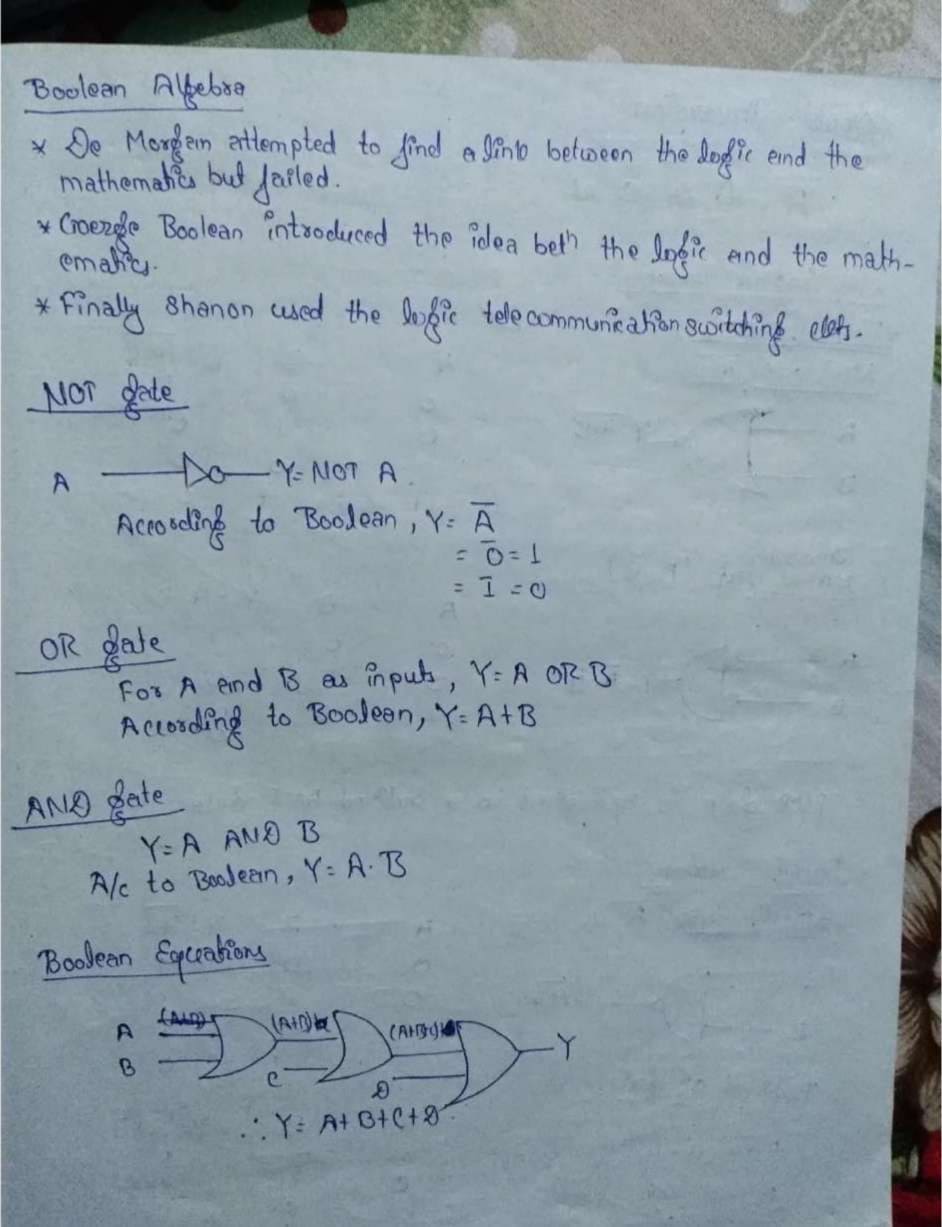 Boolean Algebra
* De Morgan attempted to find a link between the logic and the
mathematics but failed.
* Goerzge Boolean introduced the idea betn the logic and the math-
ematics.
* Finally Shanon used the logic telecommunication switching
NOT gate
A Y= NOT A.
According to Boolean, Y= A̅
= 0̅ = 1
= 1̅ = 0
OR gate
For A and B as inputs, Y= A OR B
According to Boolean, Y= A+B
AND gate
Y= A AND B
A/c to Boolean, Y= A·B
Boolean Equations
A (A+B) (A+B+C) Y
B C D
∴ Y= A+B+C+D